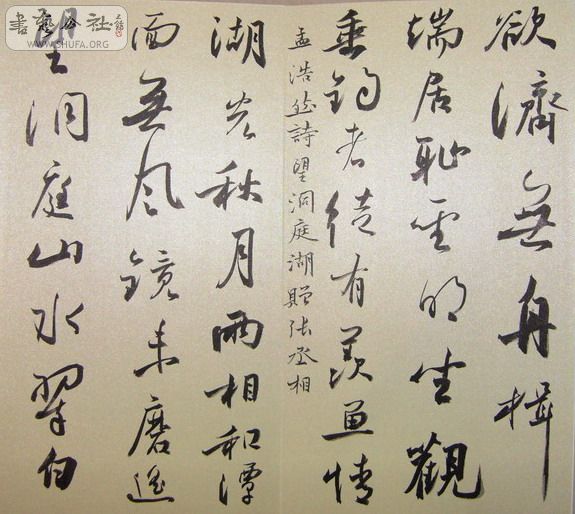 書藝公社
WWW.SHUFA.ORG
欲濟無舟楫
端居恥聖明坐觀
垂釣者徒有羨魚情
孟浩然詩望洞庭湖贈張丞相
湖光秋月兩相和潭
面無風鏡未磨遙
望洞庭山水翠白